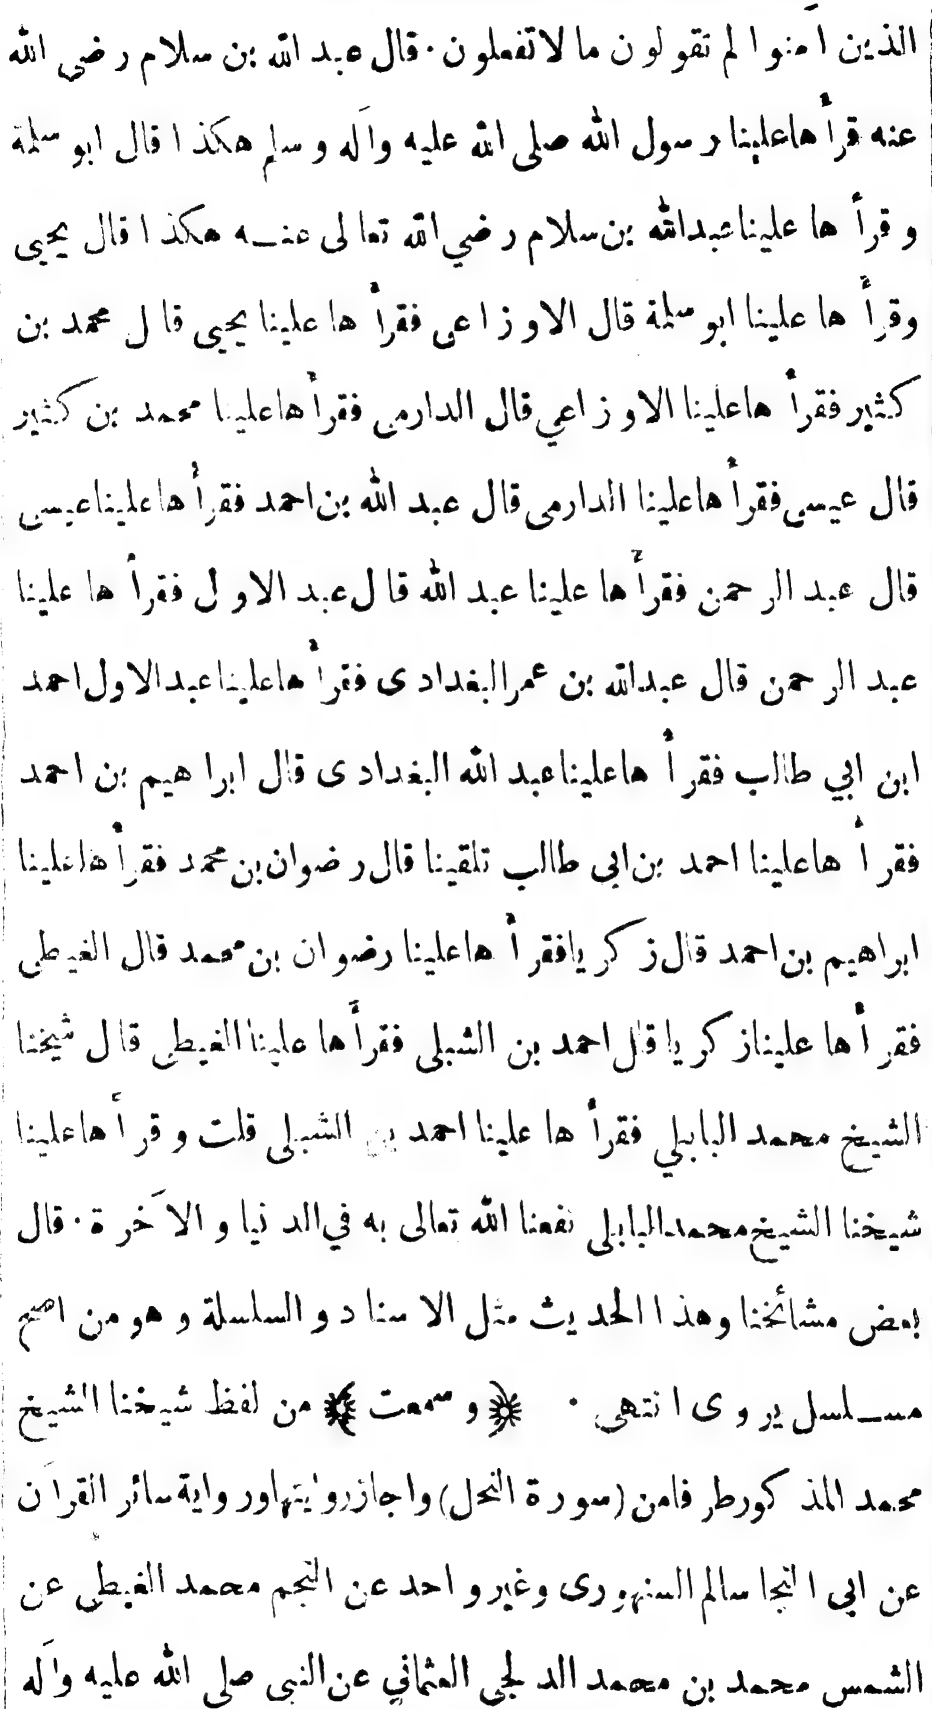 الذين آمنوا لم تقولون ما لا تفعلون · قال عبد الله بن سلام رضي الله
عنه قرأ ها علينا رسول الله صلى الله عليه وآله وسلم هكذا قال ابو سلمة
و قرأ ها علينا عبد الله بن سلام رضي الله تعالى عنه هكذا قال يحيى
وقرأ ها علينا ابو سلمة قال الاوزاعى فقرأ ها علينا يحيى قال محمد بن
كثير فقرأ ها علينا الاوزاعي قال الدارمى فقرأ ها علينا محمد بن كثير
قال عيسى فقرأ ها علينا الدارمى قال عبد الله بن احمد فقرأ ها علينا عيسى
قال عبد الرحمن فقرأ ها علينا عبد الله قال عبد الاول فقرأ ها علينا
عبد الرحمن قال عبد الله بن عمر البغدادى فقرأ ها علينا عبد الاول احمد
ابن ابي طالب فقرأ ها علينا عبد الله البغدادى قال ابراهيم بن احمد
فقرأ ها علينا احمد بن ابى طالب تلقينا قال رضوان بن محمد فقرأ ها علينا
ابراهيم بن احمد قال زكريا فقرأ ها علينا رضوان بن محمد قال الغيطى
فقرأ ها علينا زكريا قال احمد بن الشبلى فقرأ ها علينا الغيطى قال شيخنا
الشيخ محمد البابلي فقرأ ها علينا احمد بن الشبلى قلت و قرأ ها علينا
شيخنا الشيخ محمد البابلى نفعنا الله تعالى به في الدنيا و الآخرة · قال
بعض مشائخنا وهذا الحديث مثل الاسناد و السلسلة و هو من اصح
مسلسل يروى انتهى · ﴿ و سمعت ﴾ من لفظ شيخنا الشيخ
محمد المذكور طرفا من (سورة النحل) واجاز روايتها و رواية سائر القرآن
عن ابى النجا سالم السنهورى وغير واحد عن النجم محمد الغيطى عن
الشمس محمد بن محمد الدلجى العثماني عن النبى صلى الله عليه وآله